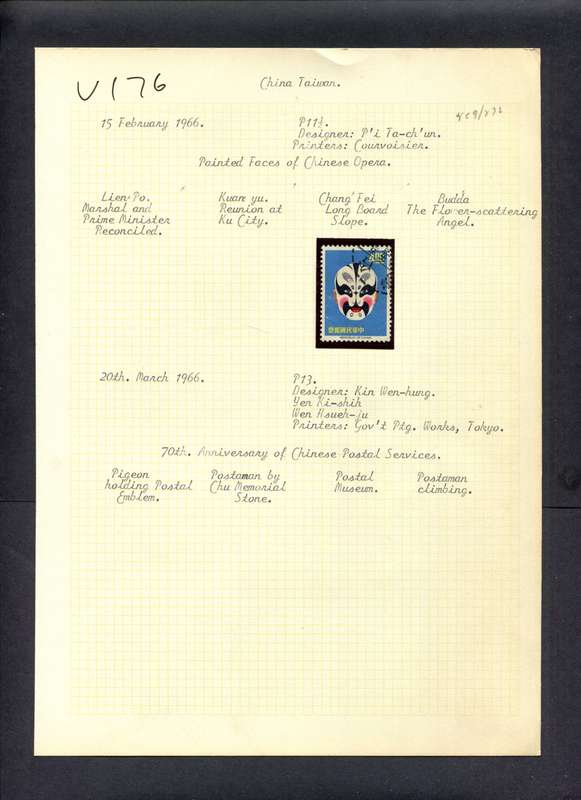 V176
China Taiwan.
569/572
15 February 1966.
P11½.
Designer: P'i Ta-ch'un.
Printers: Courvoisier.
Painted Faces of Chinese Opera.
Lien-Po.
Marshal and
Prime Minister
Reconciled.
Kuan yu.
Reunion at
Ku City.
Chang Fei
Long Board
Slope.
Budda
The Flower-scattering
Angel.
中華民國郵票
20th. March 1966.
P13.
Designer: Kin Wen-hung.
Yen Ki-shih
Wen Hsueh-ju
Printers: Gov't Ptg. Works, Tokyo.
70th. Anniversary of Chinese Postal Services.
Pigeon
holding Postal
Emblem.
Postaman by
Chu Memorial
Stone.
Postal
Museum.
Postaman
climbing.